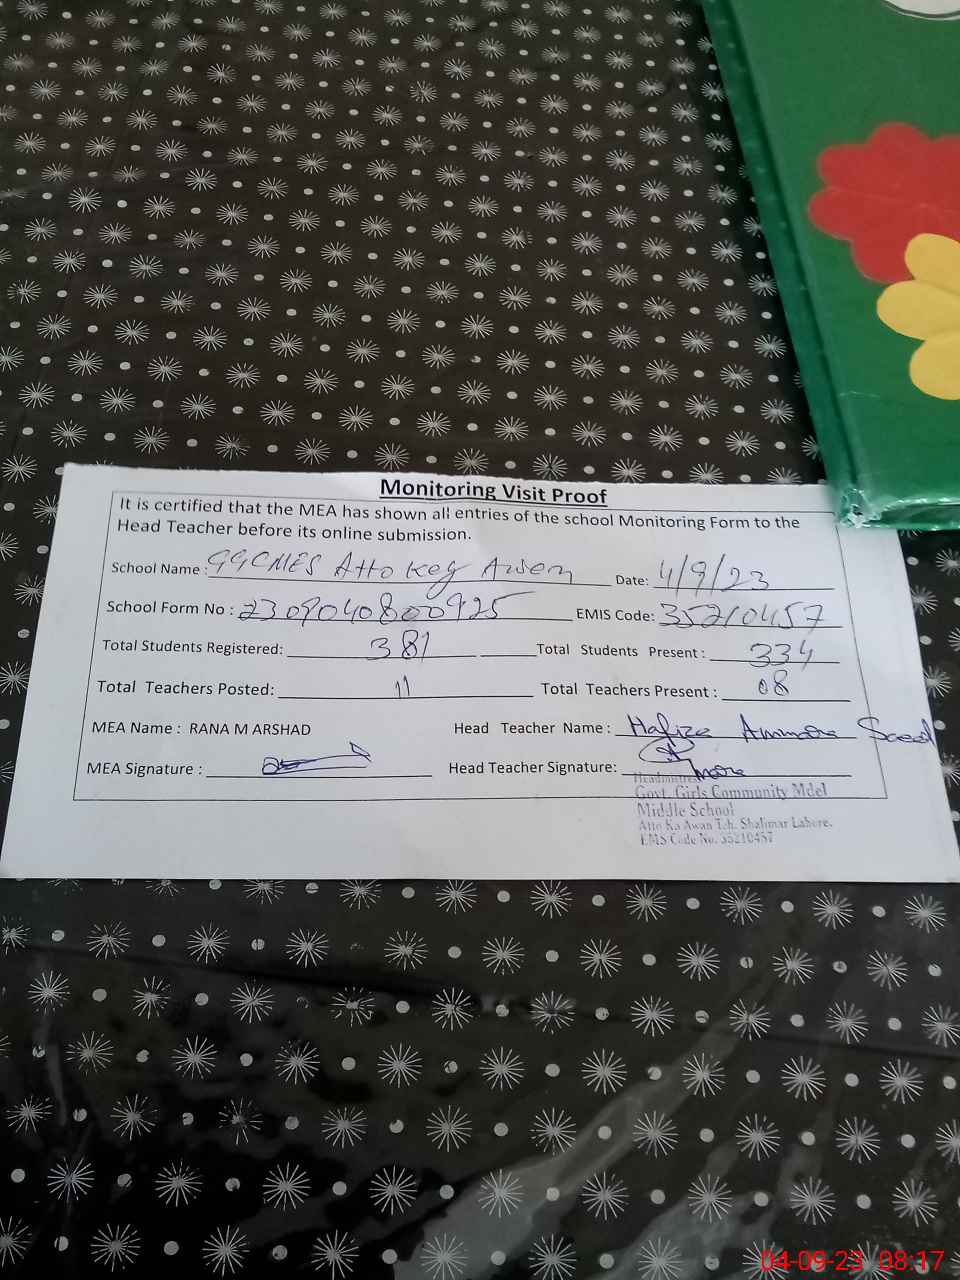 Monitoring Visit Proof
It is certified that the MEA has shown all entries of the school Monitoring Form to the
Head Teacher before its online submission.
School Name : GGCMES Atto Key Awan Date: 4/9/23
School Form No : 2309040800925 EMIS Code: 35210457
Total Students Registered: 381 Total Students Present : 334
Total Teachers Posted: 11 Total Teachers Present : 08
MEA Name : RANA M ARSHAD Head Teacher Name : Hafiza Ammara Saeed
MEA Signature : Head Teacher Signature:
Headmistress
Govt. Girls Community Mdel
Middle School
Atto Ka Awan Teh. Shalimar Lahore.
EMS Code No. 35210457
04-09-23 08:17